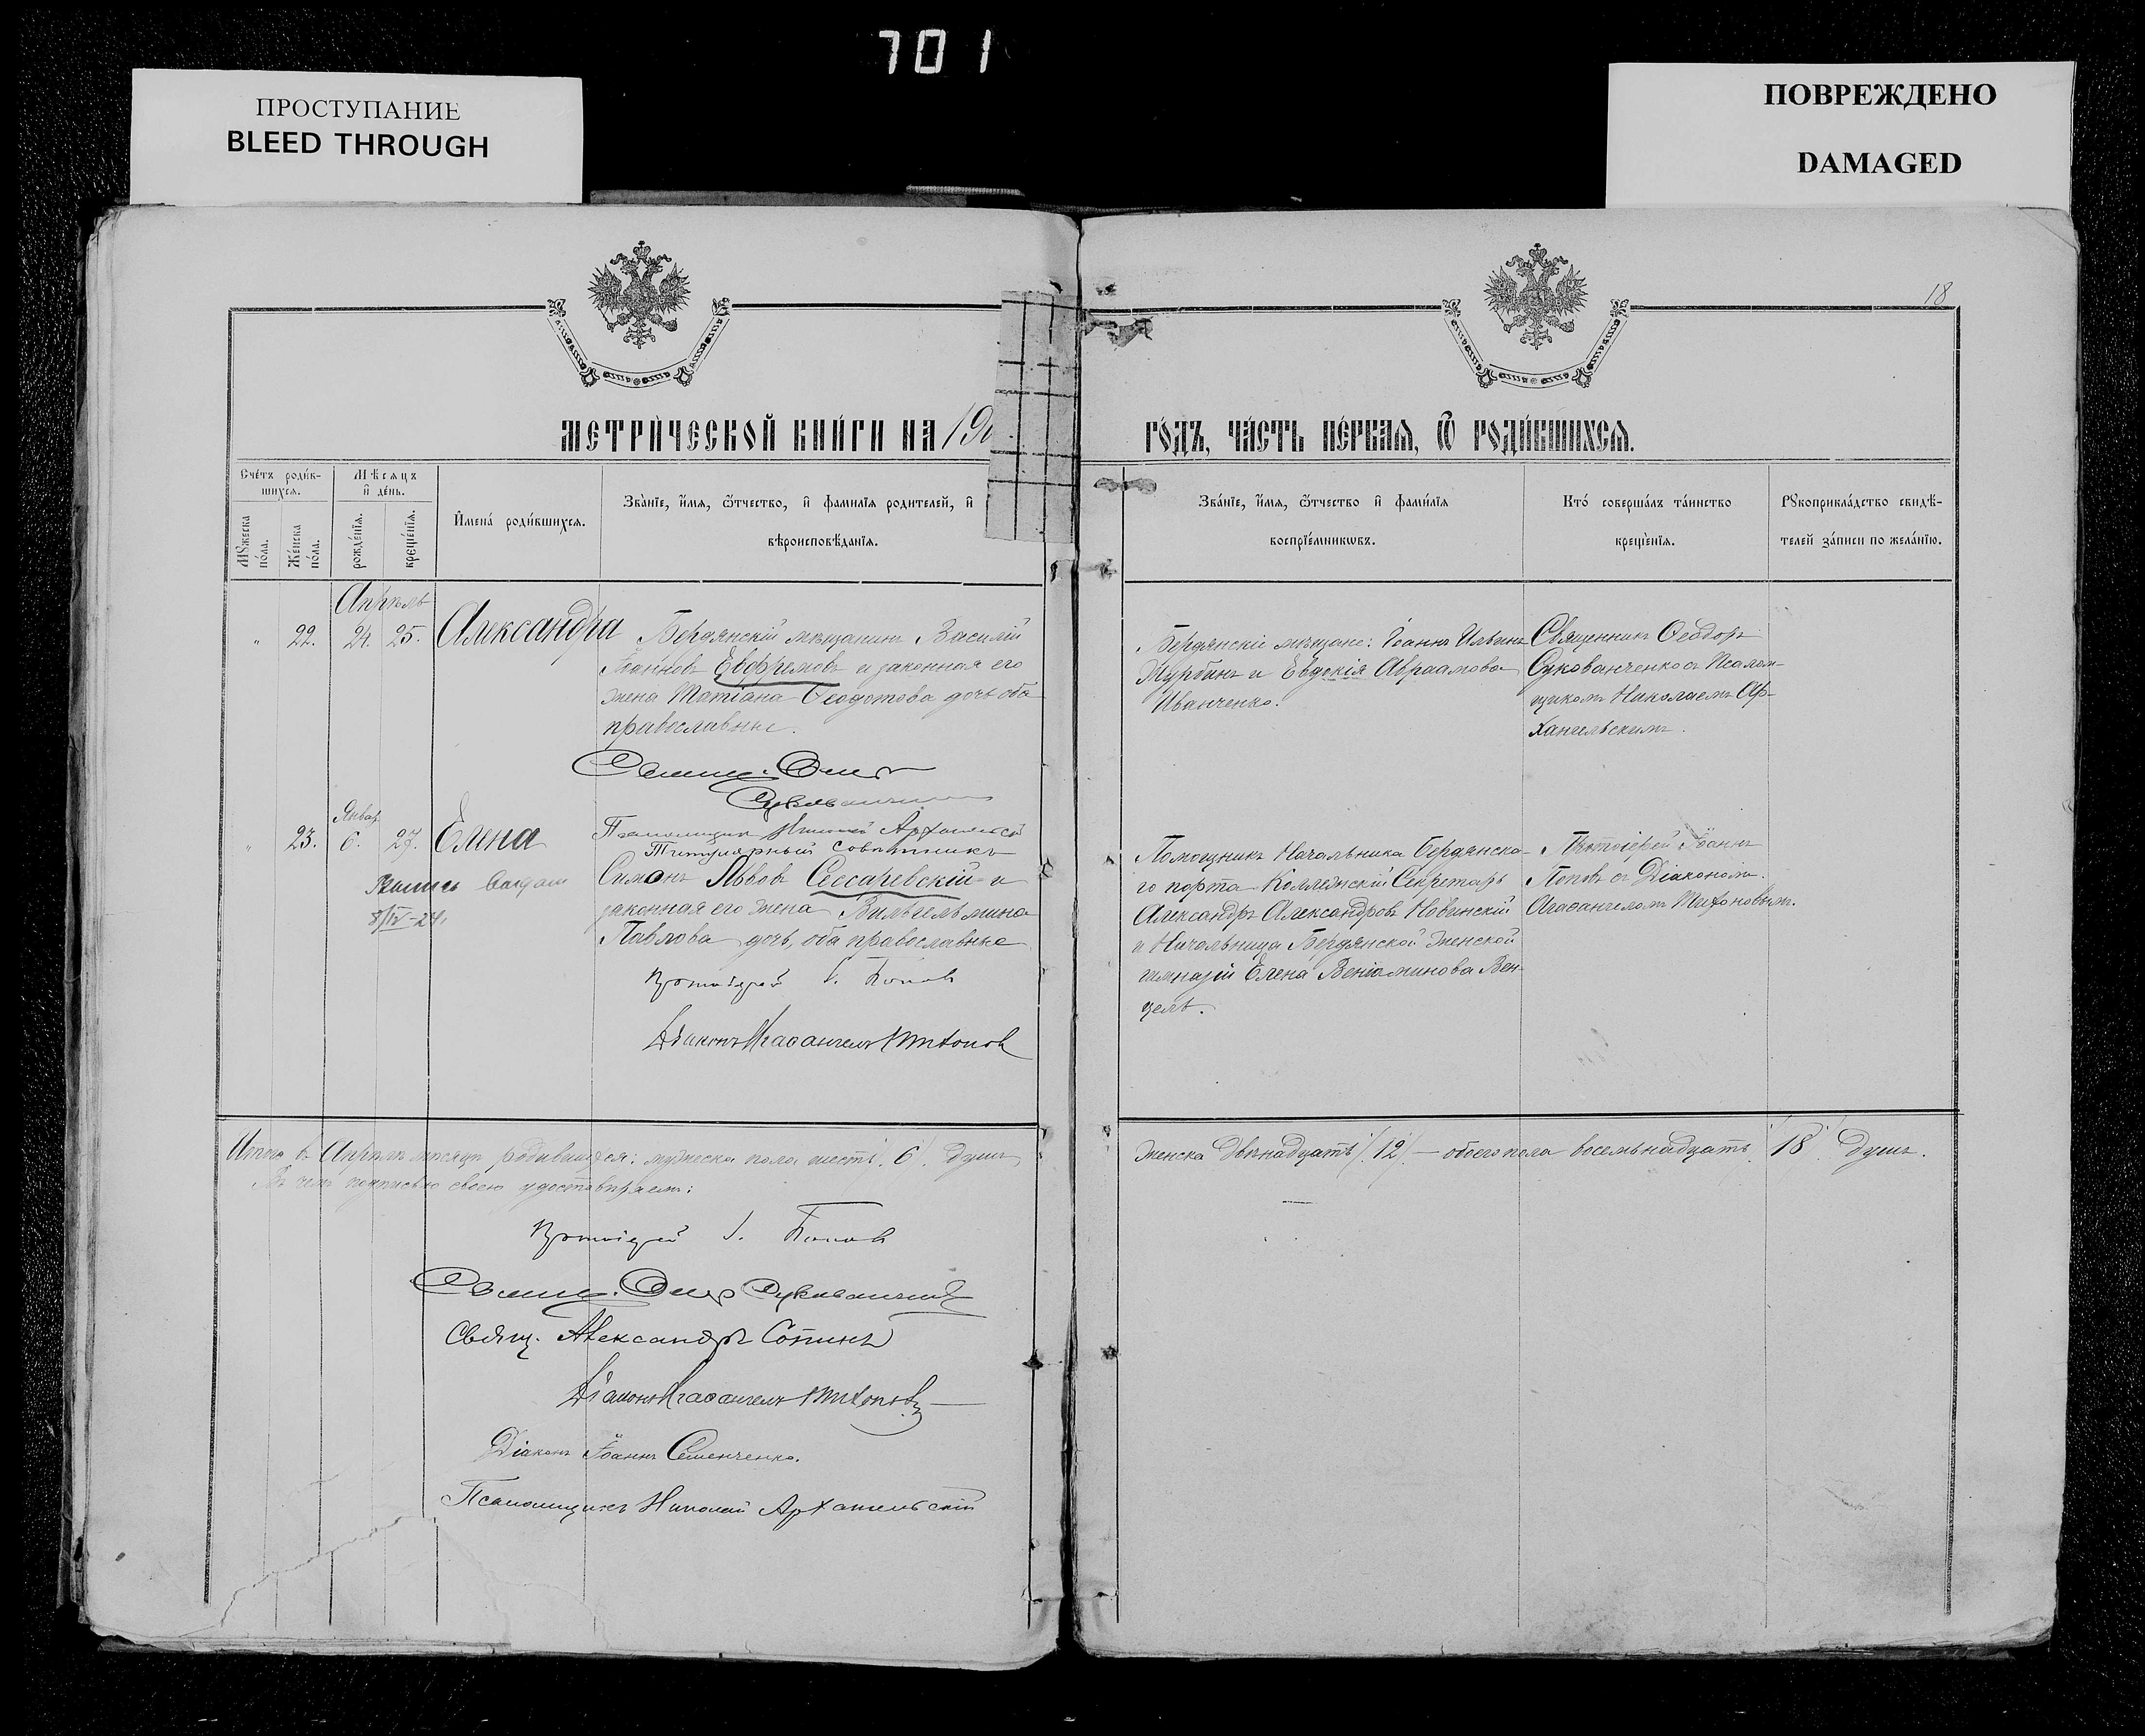 701
ПРОСТУПАНИЕ
BLEED THROUGH
ПОВРЕЖДЕНО
DAMAGED
18
МЕТРИЧЕСКОЙ КНИГИ НА 19
ГОДЪ, ЧАСТЬ ПЕРВАЯ, Ѿ РОДИВШИХСЯ.
Счетъ родив-
шихся.
Мѣсяцъ
и день.
Мꙋжеска
пола.
Женска
пола.
рожденія.
крещенія.
Имена родившихся.
Званіе, имя, ѿтчество, и фамилія родителей, и
вѣроисповѣданія.
Званіе, имя, ѿтчество и фамилія
воспріемникѡвъ.
Кто совершалъ таинство
крещенія.
Рꙋкоприкладство свидѣ-
телей записи по желанію.
Апрѣль
" 22. 24. 25. Александра
Бердянскій мѣщанинъ Василій
Іоанновъ Евфремовъ и законная его
жена Татіана Ѳеодотова дочь оба
православные.
Свящ. Ѳеод.
Сукованченко
Псаломщикъ Николай Архангельскій
Бердянскіе мѣщане: Іоаннъ Ильинъ
Турбинъ и Евдокія Авраамова
Иванченко.
Священникъ Ѳеодоръ
Сукованченко съ Псалом-
щикомъ Николаемъ Ар-
хангельскимъ.
Январ.
" 23. 6. 27. Елена
выдана
8/IV-24.
Титулярный Совѣтникъ
Симонъ Львовъ Сессаревскій и
законная его жена Вильгельмина
Павлова дочь, оба православные
Протоіерей І. Поповъ
Діаконъ Агаѳангелъ Тихоновъ
Помощникъ Начальника Бердянска-
го порта Коллежскій Секретарь
Александръ Александровъ Новинскій
и Начальница Бердянской женской
гимназіи Елена Веніаминова Вен-
цель.
Протоіерей Іоаннъ
Поповъ съ Діакономъ
Агаѳангеломъ Тихоновымъ.
Итого въ Апрѣлѣ мѣсяцѣ родившихся: мужеска пола шесть 6 душъ,
Въ чемъ подписью своею удостовѣряемъ:
женска двѣнадцать /12/ — обоего пола восемьнадцать /18/ душъ.
Протоіерей І. Поповъ
Свящ. Ѳеод. Сукованченко
Свящ. Александръ Сопинъ
Діаконъ Агаѳангелъ Тихоновъ
Діаконъ Іоаннъ Семенченко.
Псаломщикъ Николай Архангельскій